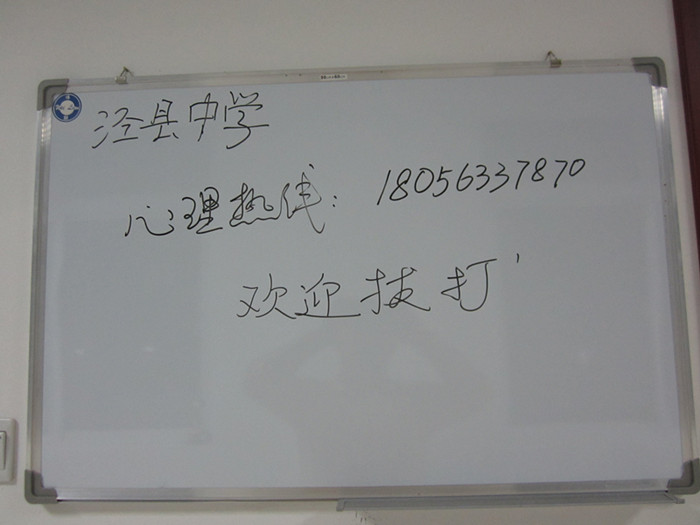 泾县中学
心理热线：18056337870
欢迎拔打！